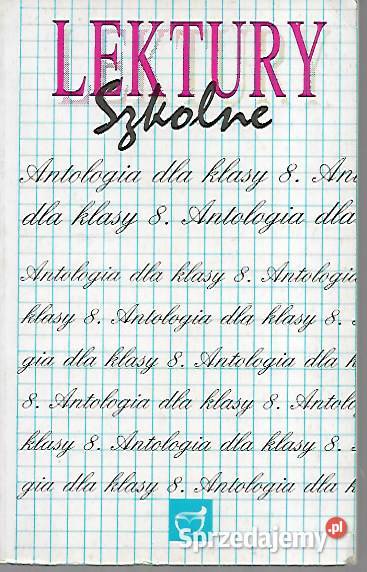 LEKTURY
Szkolne
Antologia dla klasy 8. An
dla klasy 8. Antologia dla
Antologia dla klasy 8. Antologia
klasy 8. Antologia dla klasy 8.
gia dla klasy 8. Antologia dla k
8. Antologia dla klasy 8. Antolo
klasy 8. Antologia dla klasy 8.
gia dla klasy 8. Antologia dla k
Sprzedajemy.pl